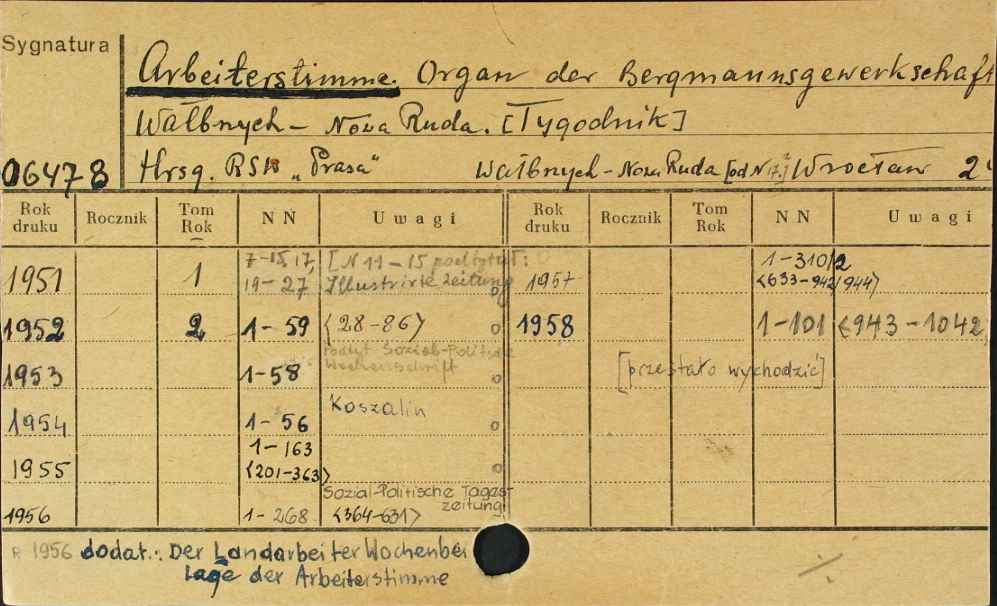 Sygnatura
Arbeiterstimme. Organ der Bergmannsgewerkschaft
Wałbrzych - Nowa Ruda. [Tygodnik]
06478 Hrsg. RSW „Prasa" Wałbrzych - Nowa Ruda [od N 17.] Wrocław 2°
Rok druku Rocznik Tom Rok NN Uwagi Rok druku Rocznik Tom Rok NN Uwagi
1951 1 7-15, 17, 19-27 [N 11-15 podtytuł: Illustrirte Zeitung 1957 1-310/2 <633-942/944>
1952 2 1-59 <28-86> 1958 1-101 <943-1042>
1953 1-58 Podtyt Sozial-Politische Wochenschrift [przestało wychodzić]
1954 1-56 Koszalin
1955 1-163 <201-363>
1956 1-268 Sozial-Politische Tageszeitung <364-631>
R 1956 dodat.: Der Landarbeiter Wochenbei
lage der Arbeiterstimme